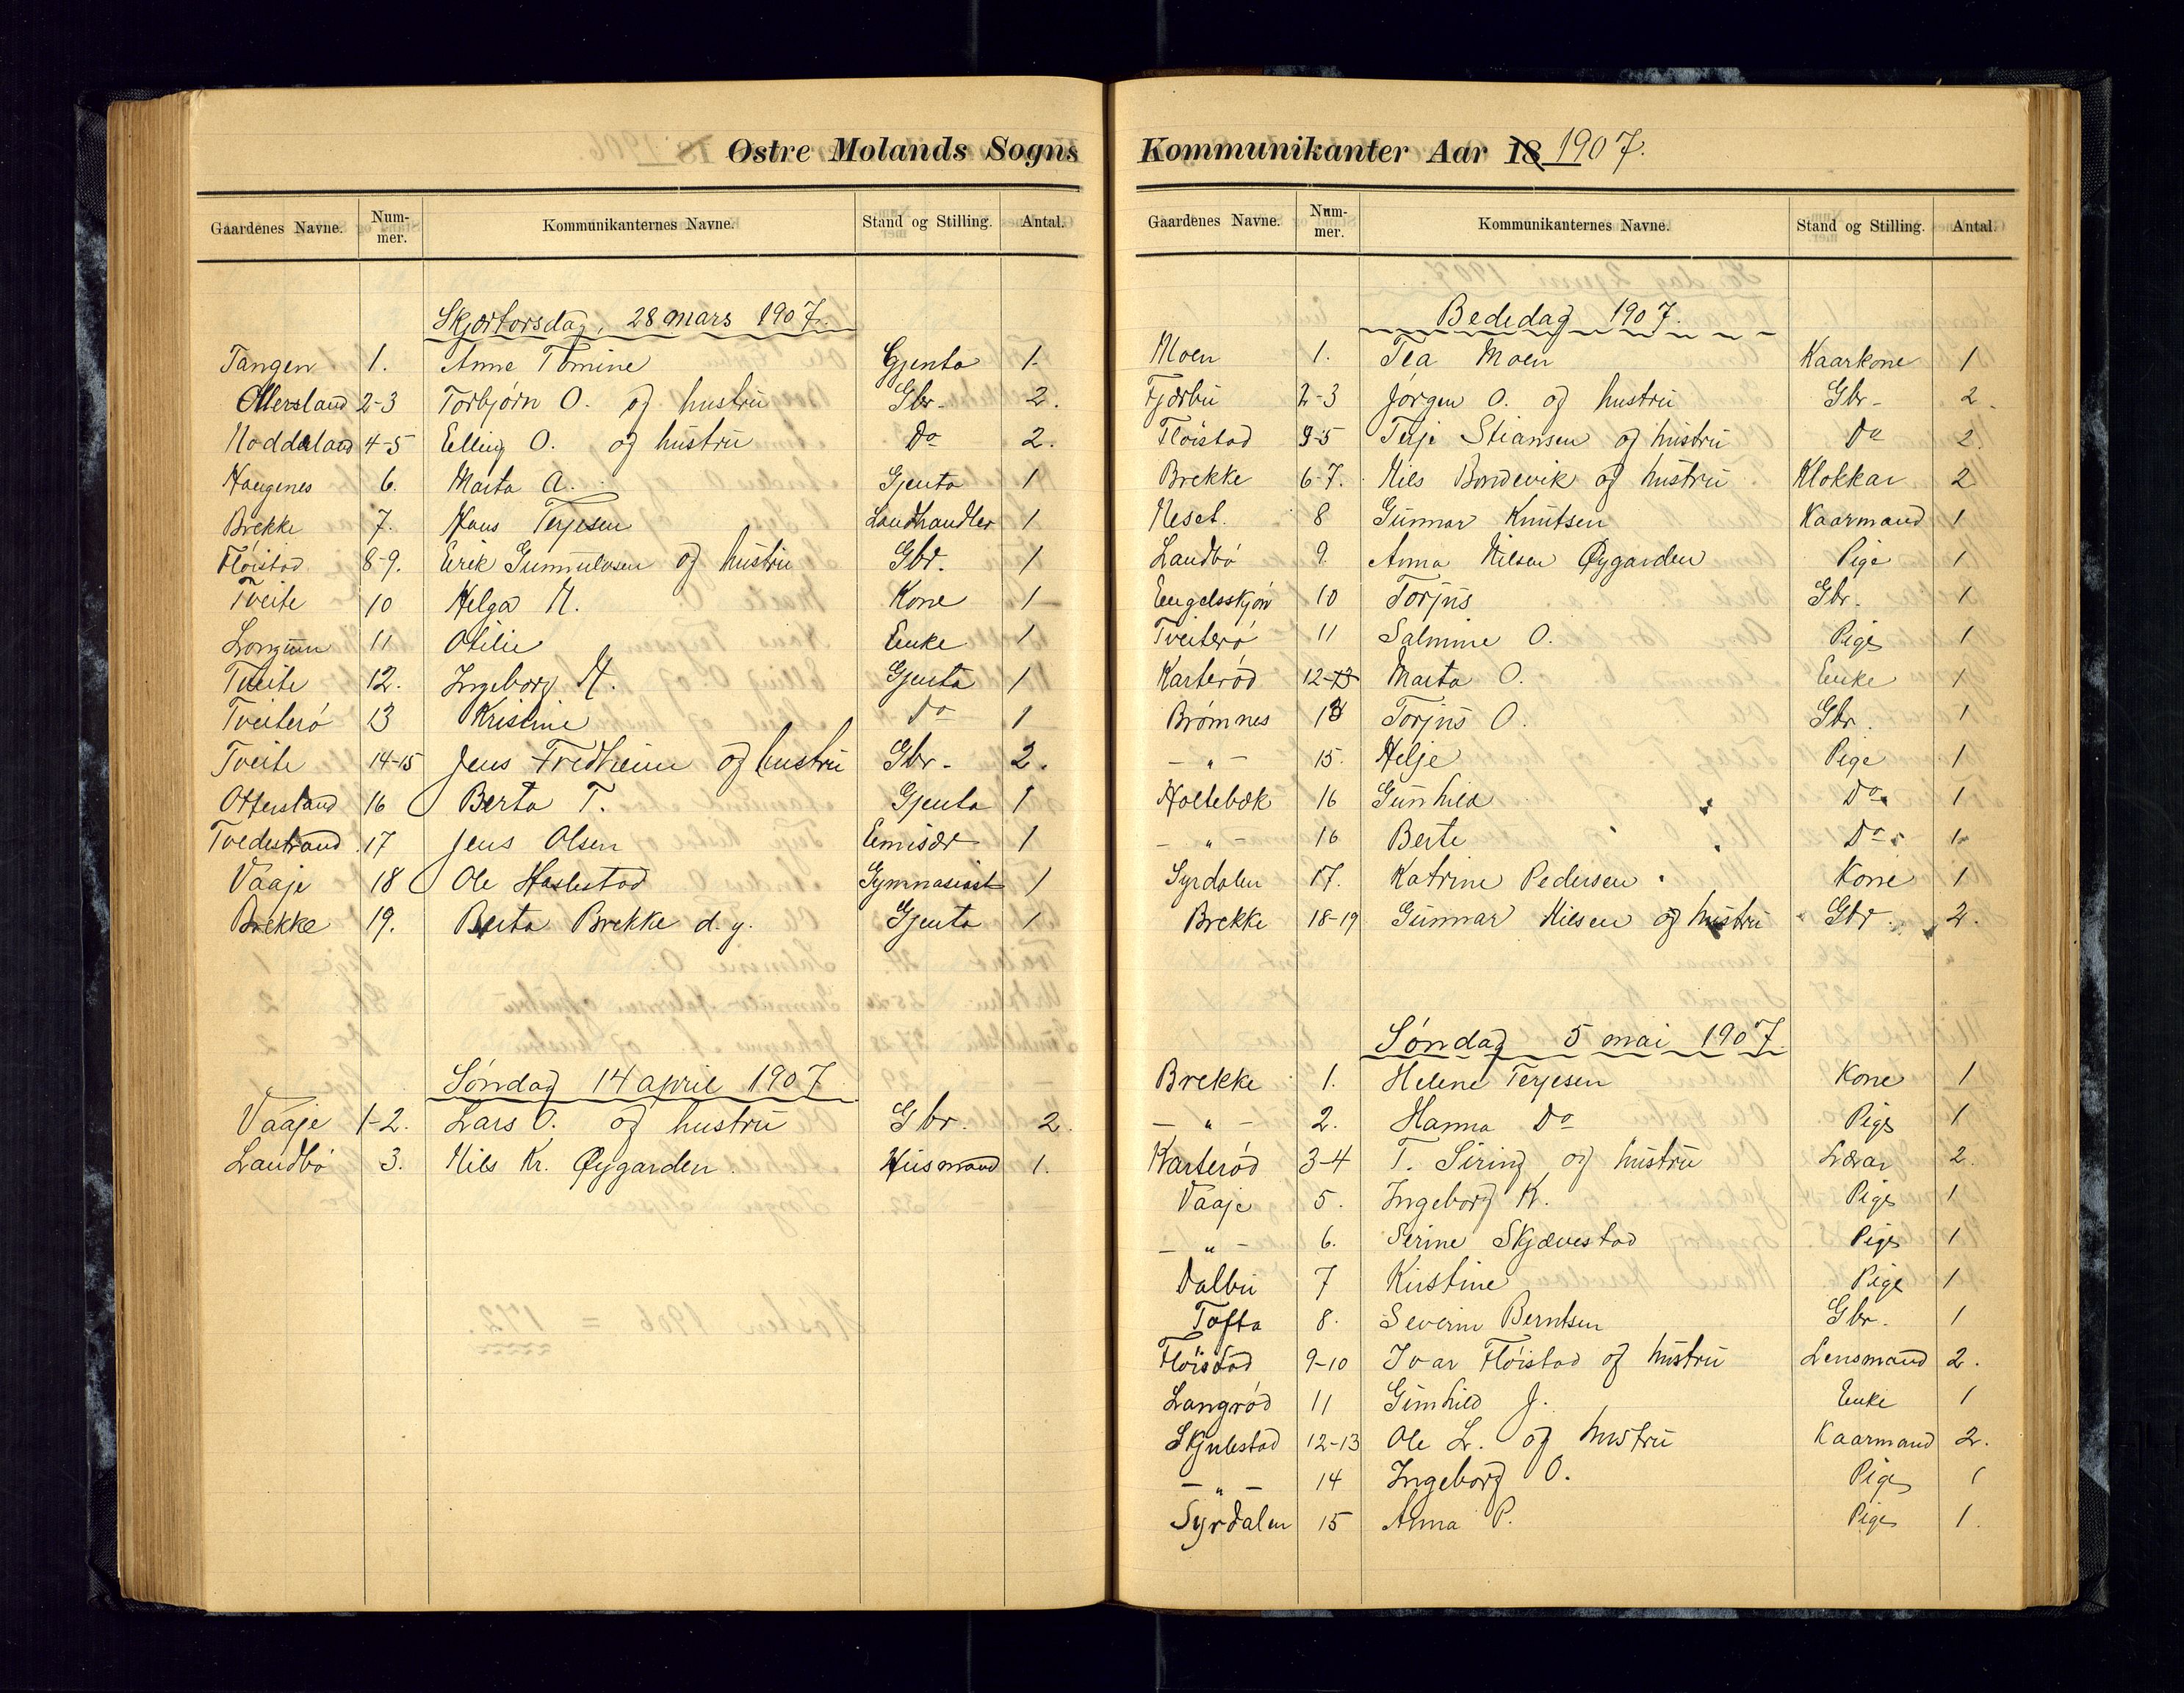 Østre Molands Sogns
Gaardenes Navne. Num-mer. Kommunikanternes Navne. Stand og Stilling. Antal.
Skjærtorsdag, 28 mars 1907.
Tangen 1. Anne Tomine Gjenta 1.
Ottersland 2-3 Torbjørn O. og hustru Gbr. 2.
Noddeland 4-5 Elling O. og hustru Do 2.
Haugenes 6. Marta A. Gjenta 1
Brekke 7. Hans Terjesen Landhandler 1
Fløistad 8-9. Erik Gunnulvsen og hustru Gbr. 1
Tveite 10 Helga N. Kone 1
Longum 11 Otilie Enke 1
Tveite 12. Ingeborg N. Gjenta 1
Tveiterø 13 Kristine Do 1
Tveite 14-15 Jens Fredheim og hustru Gbr. 2.
Ottersland 16 Berta T. Gjenta 1
Tvedestrand 17 Jens Olsen Emisær 1
Vaaje 18 Ole Haslestad Gymnasiast 1
Brekke 19. Berta Brekke d. y. Gjenta 1
Søndag 14 april 1907
Vaaje 1-2. Lars O. og hustru Gbr. 2.
Landbø 3. Nils Kr. Øygarden. Husmand 1.
Kommunikanter Aar 18 1907.
Gaardenes Navne. Num-mer. Kommunikanternes Navne. Stand og Stilling. Antal.
Bededag 1907.
Moen 1. Tea Moen Kaarkone 1
Fjærbu 2-3 Jørgen O. og hustru Gbr. 2.
Fløistad 4-5 Terje Stiansen og hustru Do 2.
Brekke 6-7. Nils Bondevik og hustru Klokkar 2
Neset. 8 Gunnar Knutsen Kaarmand 1
Landbø 9 Anna Nilsen Øygarden Pige 1
Engelsskjøn 10 Torjus Gbr. 1
Tveiterø 11 Salmine O. Pige 1.
Karterød 12-13 Marta O. Enke 1
Brømnes 13 Torjus O. Gbr. 1
- " - 15. Helje Pige 1
Holtebæk 16 Gunhild Do 1
- " - 16 Berte Do 1
Syrdalen 17. Katrine Pedersen Kone 1
Brekke 18-19 Gunnar Nilsen og hustru Gbr. 2.
Søndag 5 mai 1907.
Brekke 1. Helene Terjesen Kone 1
- " - 2. Hanna Do Pige 1
Karterød 3-4 T. Siring og hustru Lærar 2.
Vaaje 5. Ingeborg K. Pige 1
- " - 6. Serine Skjævestad Pige 1
Dalbu 7 Kirstine Pige 1
Tofta 8. Severin Berntsen Gbr. 1
Fløistad 9-10 Ivar Fløistad og hustru Lensmand 2.
Langrød 11 Gunhild J. Enke 1
Skjulestad 12-13 Ole L. og hustru Kaarmand 2.
- " - 14 Ingeborg O. Pige 1
Syrdalen 15 Anna P. Pige 1.